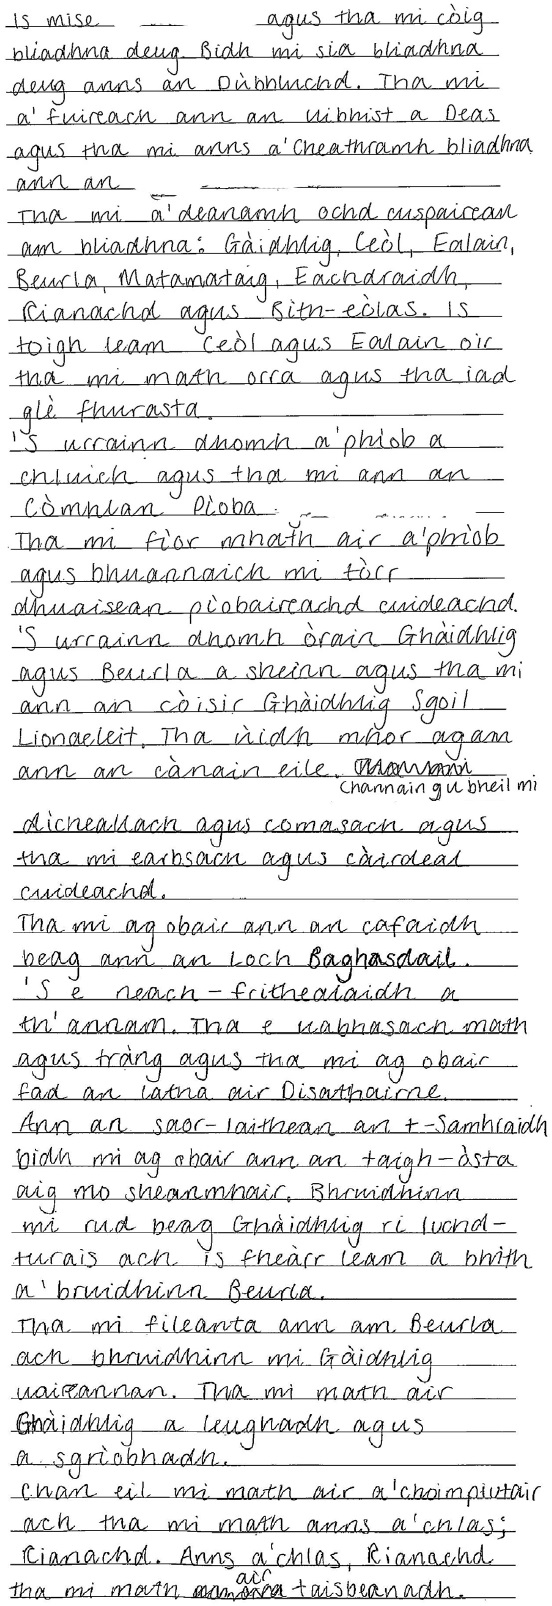 Is mise agus tha mi còig
bliadhna deug. Bidh mi sia bliadhna
deug anns an Dùbhluchd. Tha mi
a' fuireach ann an Uibhist a Deas
agus tha mi anns a' Cheathramh bliadhna
ann an
Tha mi a' deanamh ochd cuspairean
am bliadhna: Gàidhlig, Ceòl, Ealain,
Beurla, Matamataig, Eachdraidh,
Rianachd agus Bith-eòlas. Is
toigh leam Ceòl agus Ealain oir
tha mi math orra agus tha iad
glè fhurasta.
'S urrainn dhomh a' phìob a
chluich agus tha mi ann an
Còmhlan Pìoba
Tha mi fìor mhath air a' phìob
agus bhuannaich mi tòrr
dhuaisean pìobaireachd cuideachd.
'S urrainn dhomh òrain Ghàidhlig
agus Beurla a sheinn agus tha mi
ann an còisir Ghàidhlig Sgoil
Lionacleit. Tha ùidh mhòr agam
ann an cànain eile.
Channain gu bheil mi
dìcheallach agus comasach agus
tha mi earbsach agus càirdeal
cuideachd.
Tha mi ag obair ann an cafaidh
beag ann an Loch Baghasdail.
'S e neach-frithealaidh a
th' annam. Tha e uabhasach math
agus tràng agus tha mi ag obair
fad an latha air Disathairne.
Ann an saor-laithean an t-Samhraidh
bidh mi ag obair ann an taigh-òsta
aig mo sheanmhair. Bhruidhinn
mi rud beag Ghàidhlig ri luchd-
turais ach is fheàrr leam a bhith
a' bruidhinn Beurla.
Tha mi fileanta ann am Beurla
ach bhruidhinn mi Gàidhlig
uaireannan. Tha mi math air
Ghàidhlig a leughadh agus
a sgrìobhadh.
Chan eil mi math air a' choimpiutair
ach tha mi math anns a' chlas;
Rianachd. Anns a' chlas, Rianachd
tha mi math air taisbeanadh.